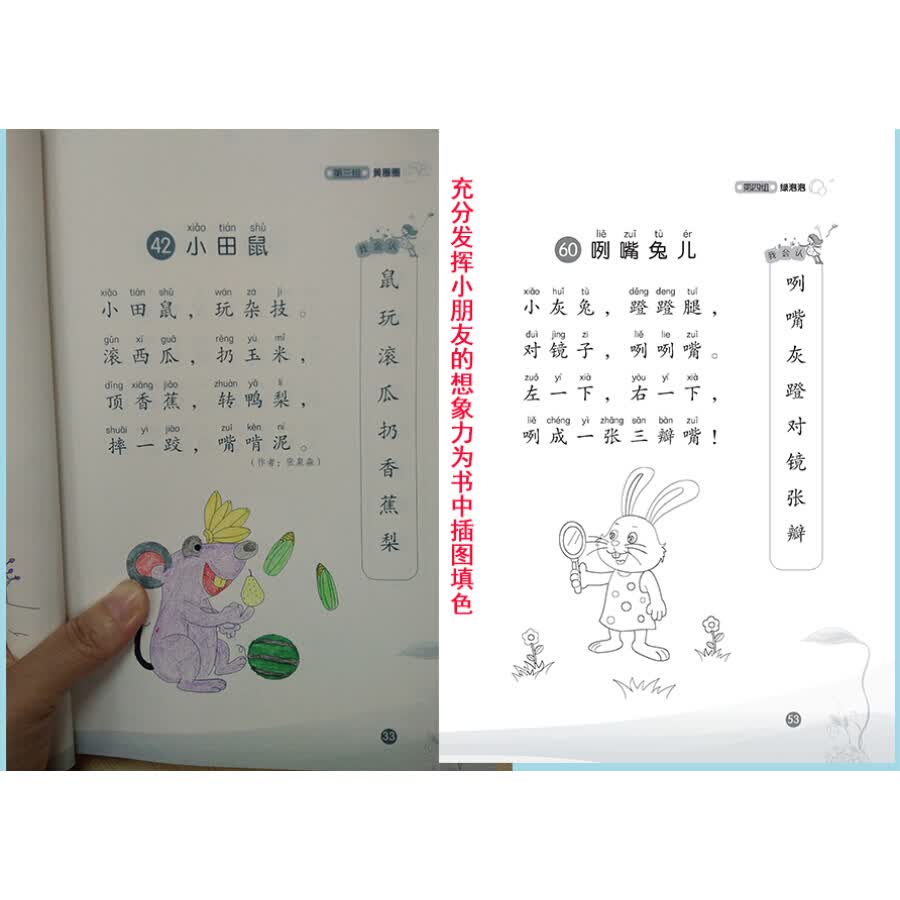 第三组 黄圈圈
xiǎo tián shǔ
42 小田鼠
xiǎo tián shǔ wán zá jì
小田鼠，玩杂技。
gǔn xī guā rēng yù mǐ
滚西瓜，扔玉米，
dǐng xiāng jiāo zhuàn yā lí
顶香蕉，转鸭梨，
shuāi yì jiāo zuǐ kěn ní
摔一跤，嘴啃泥。
（作者：张泉淼）
我会认
鼠
玩
滚
瓜
扔
香
蕉
梨
33
充分发挥小朋友的想象力为书中插图填色
第四组 绿泡泡
liě zuǐ tù ér
60 咧嘴兔儿
xiǎo huī tù dēng deng tuǐ
小灰兔，蹬蹬腿，
duì jìng zi liě lie zuǐ
对镜子，咧咧嘴。
zuǒ yí xià yòu yí xià
左一下，右一下，
liě chéng yì zhāng sān bàn zuǐ
咧成一张三瓣嘴！
我会认
咧
嘴
灰
蹬
对
镜
张
瓣
53